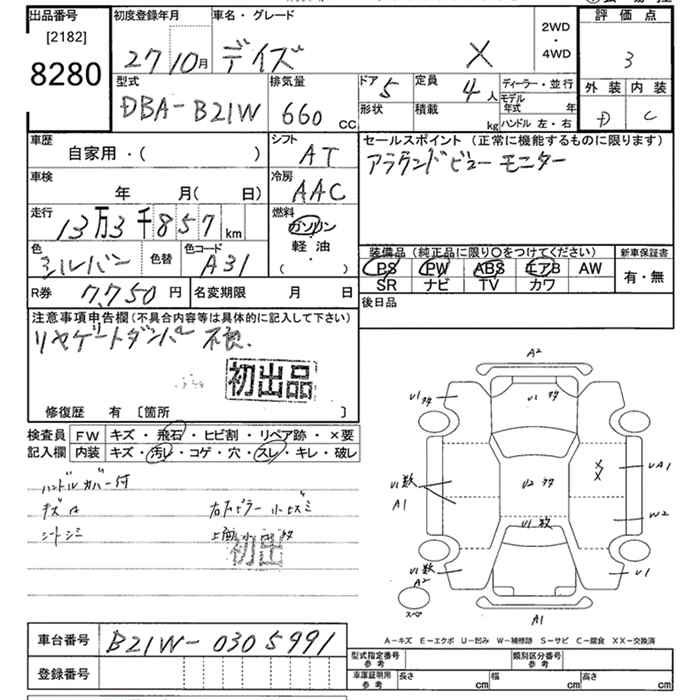 出品番号
[2182]
8280
初度登録年月
27 10月
車名・グレード
デイズ X
2WD
・
4WD
評価点
3
外装 内装
D C
型式
DBA-B21W
排気量
660 cc
ドア 5
定員 4人
形状
積載 kg
ディーラー・並行
モデル年式 年
ハンドル 左・右
車歴
自家用・( )
シフト
AT
車検
年 月( 日)
冷房
AAC
走行
13万3千857km
燃料
ガソリン
軽油
( ・ )
色
シルバー
色替
色コード
A31
R券 7,750円
名変期限 月 日
セールスポイント (正常に機能するものに限ります)
アラウンドビューモニター
装備品 (純正品に限り〇をつけてください)
PS PW ABS エアB AW
SR ナビ TV カワ
新車保証書
有・無
後日品
注意事項申告欄(不具合内容等は具体的に記入して下さい)
リヤゲートダンパー不良
初出品
修復歴 有 [箇所 ]
検査員
記入欄
FW キズ・飛石・ヒビ割・リペア跡・×要
内装 キズ・汚レ・コゲ・穴・スレ・キレ・破レ
ハンドルカバー付
シートシミ
初出
A2
U1
U1
U2
U1数
U1数
A1
UA1
W2
U1数
A2
U1
A1
スペア
A-キズ E-エクボ U-凹み W-補修跡 S-サビ C-腐食 XX-交換済
車台番号 B21W-0305991
登録番号
型式指定番号
参考
類別区分番号
参考
車庫証明用
参考
長さ cm 幅 cm 高さ cm